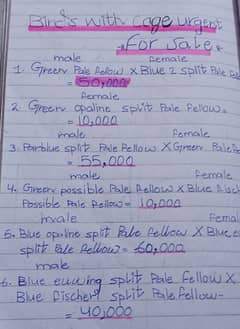 Birds with Cage urgent
For Sale
male female
1. Green Pale fellow X Blue 2 split Pale
= 50,000
female
2. Green opaline split Pale Fellow.
= 10,000
male female
3. Parblue split Pale Fellow X Green Pale
= 55,000
male female
4. Green possible Pale Fellow X Blue fisch
Possible Pale Fellow = 10,000
male Femal
5. Blue opaline split Pale fellow X Blue
split Pale fellow = 60,000
male
6. Blue split Pale fellow X
Blue fischer split Pale Fellow-
= 40,000